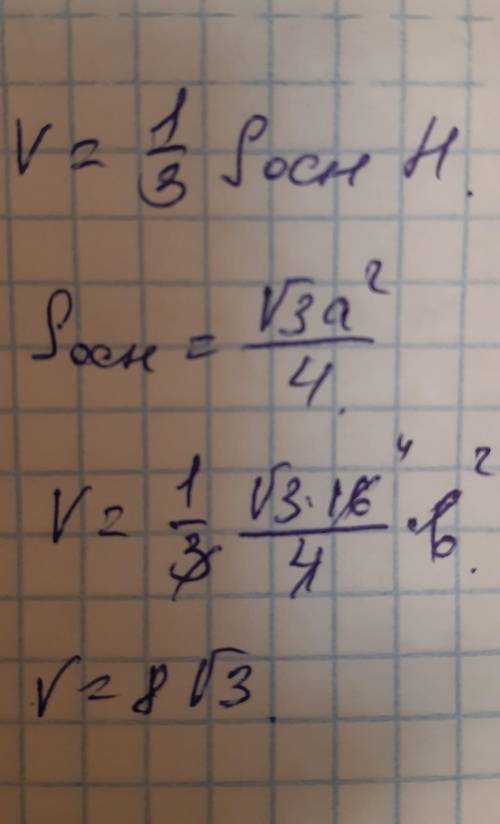 V = 1/3 Sосн H.
Sосн = √3a²/4.
V = 1/3 √3·16/4 ⁴ · 6 ².
V = 8√3.